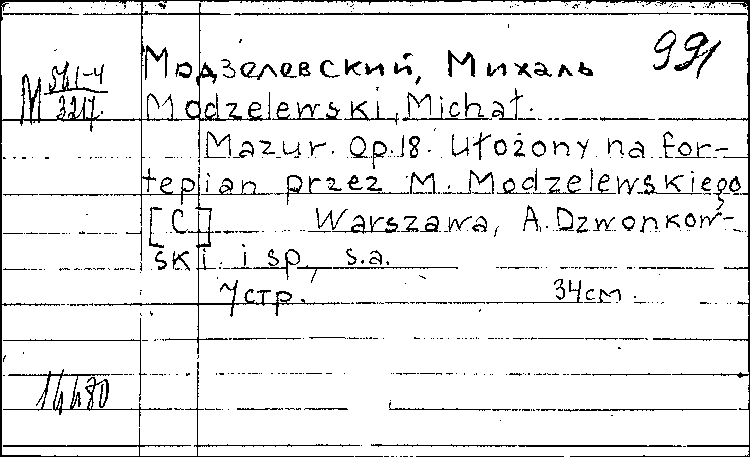 991
Модзелевский, Михаль
М 561-4
3217
Modzelewski, Michał.
Mazur. Op.18. Ułożony na for-
tepian przez M. Modzelewskiego
[C] Warszawa, A. Dzwonkow-
ski i sp., s.a.
7стр. 34см.
14480